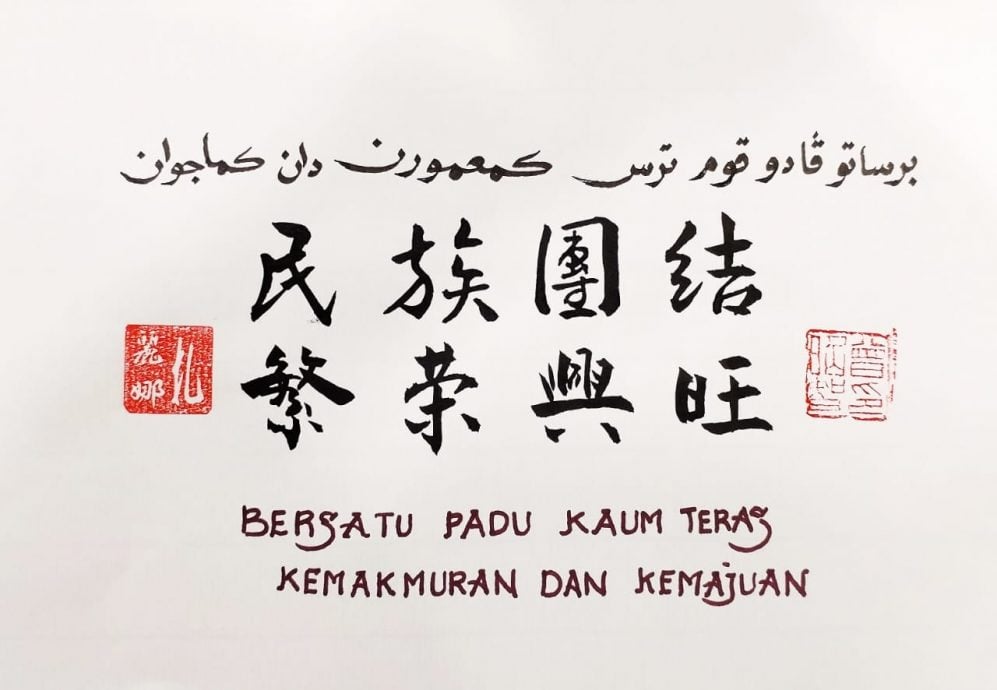 برساتو ڤادو قوم ترس كمعمورن دان كماجوان
民族團结
繁荣興旺
麗娜
BERSATU PADU KAUM TERAS
KEMAKMURAN DAN KEMAJUAN